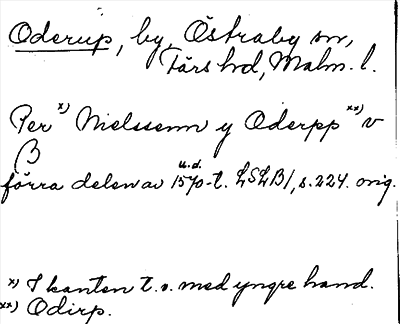 Oderup, by, Östraby sn,
Färs hd, Malm. l.
Per x) Nielssenn y Oderpp xx) v
β
u.d.
förra delen av 1570-t. LSLB1, s. 224. orig.
x) I kanten t.v. med yngre hand.
xx) Odirp.